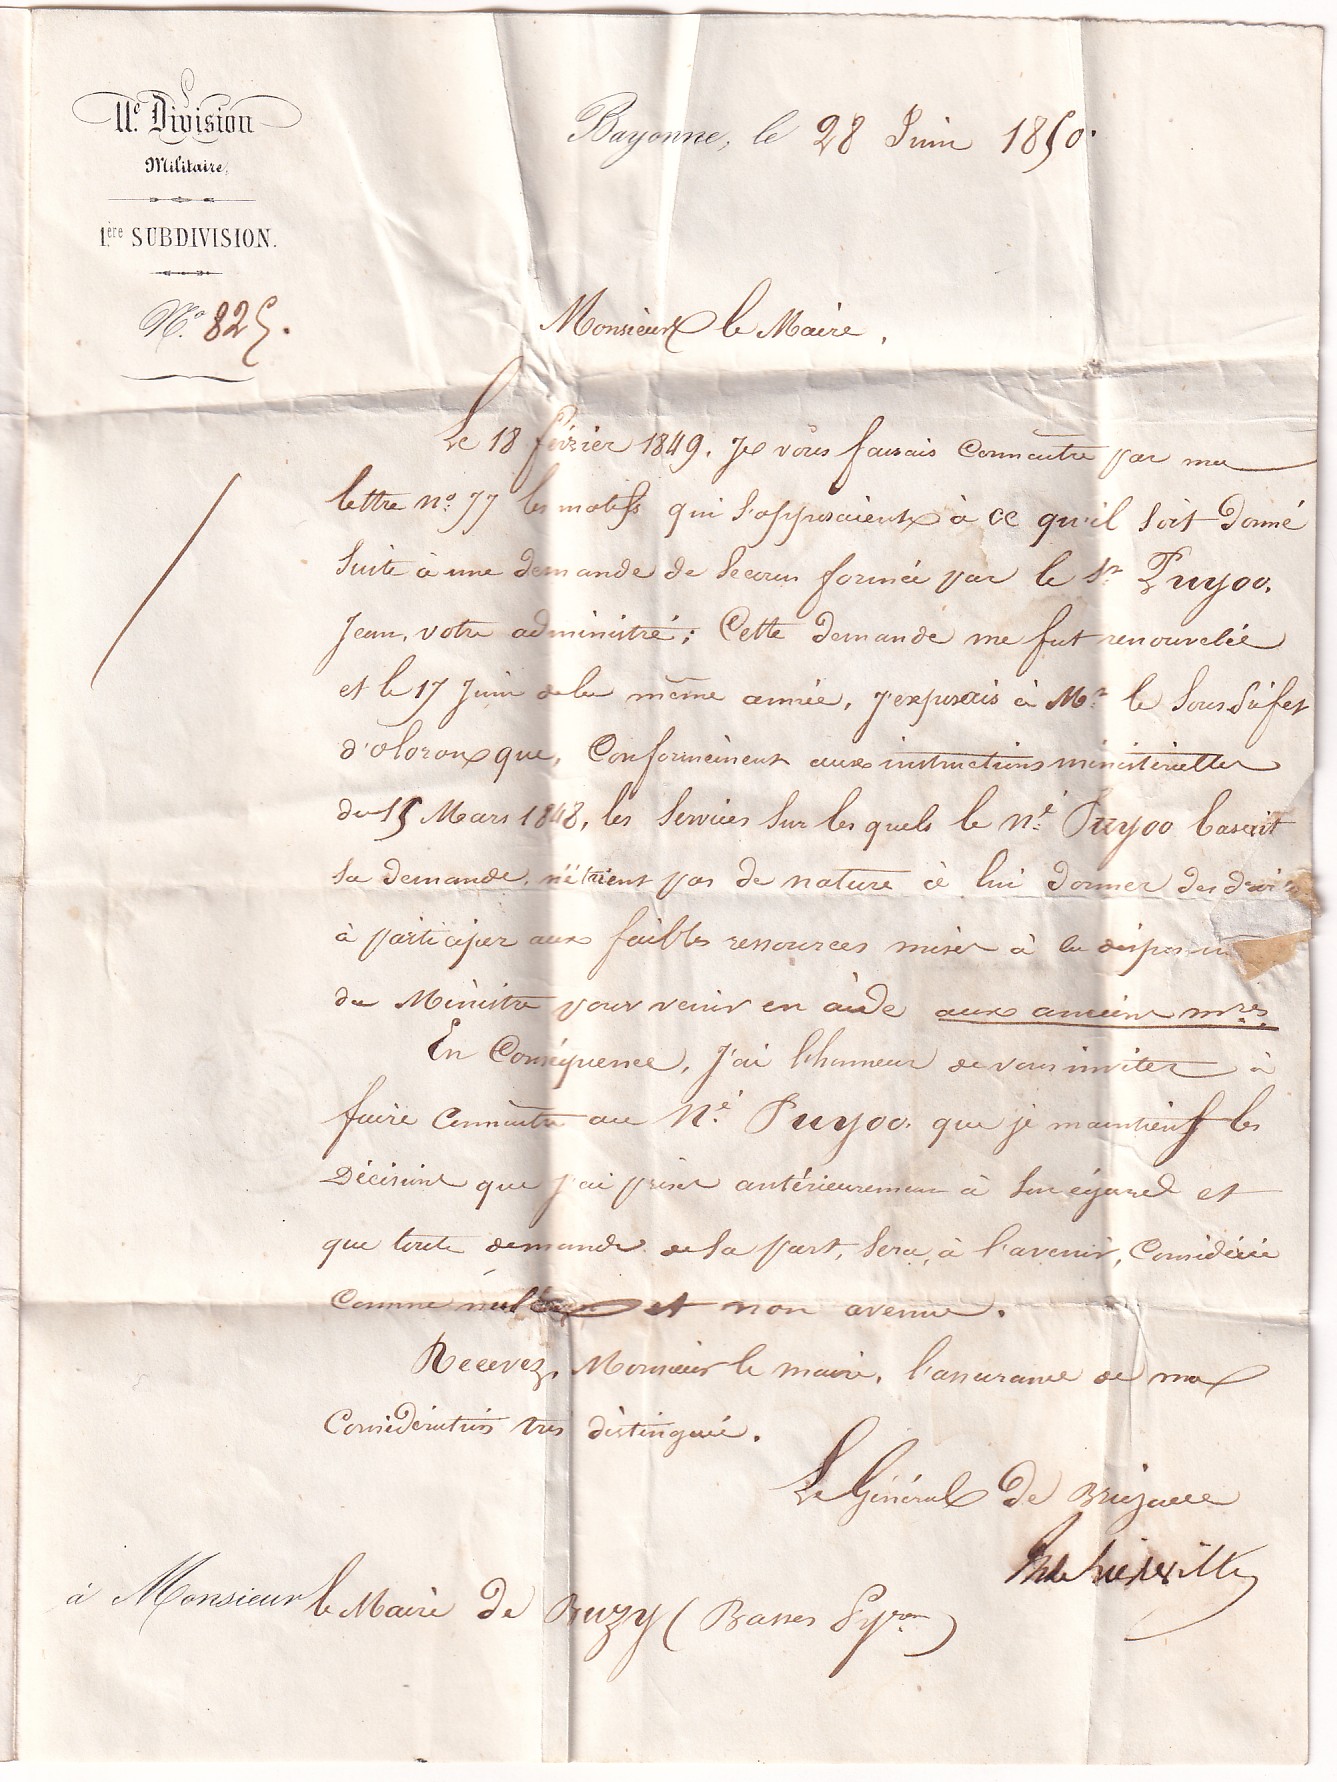 11e. Division
Militaire,
1ère SUBDIVISION.
No. 825.
Bayonne, le 28 Juin 1850.
Monsieur le Maire,
Le 18 février 1849. Je vous faisais connaitre par ma
lettre no. 77 les motifs qui s'opposaient à ce qu'il soit donné
suite à une demande de secours formée par le Sr. Puyoo,
Jean, votre administré; Cette demande me fut renouvelée
et le 17 Juin de la même année, j'exposais à Mr. le Sous Préfet
d'oloron que, Conformément aux instructions ministérielles
du 15 Mars 1848, les services sur les quels le né. Puyoo basait
sa demande, n'étaient pas de nature à lui donner des droits
à participer aux faibles ressources mises à la disposi
du Ministre pour venir en aide aux anciens mres.
En Conséquence, J'ai l'honneur de vous inviter à
faire connaitre au Né. Puyoo, que je maintiens les
Décisions que j'ai prises antérieurement à son égard et
que toute demande de sa part, sera, à l'avenir, Considérée
comme nulle et non avenue.
Recevez, Monsieur le maire, l'assurance de ma
Considération très distinguée.
Le Général de Brigade
à Monsieur le Maire de Buzy (Basses Pyren.)